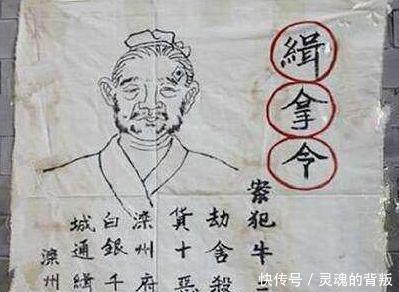 緝拿令
案犯牛
劫舍殺
貨十惡
滦州府
白銀千
城通緝
滦州
快传号 / 灵魂的背叛